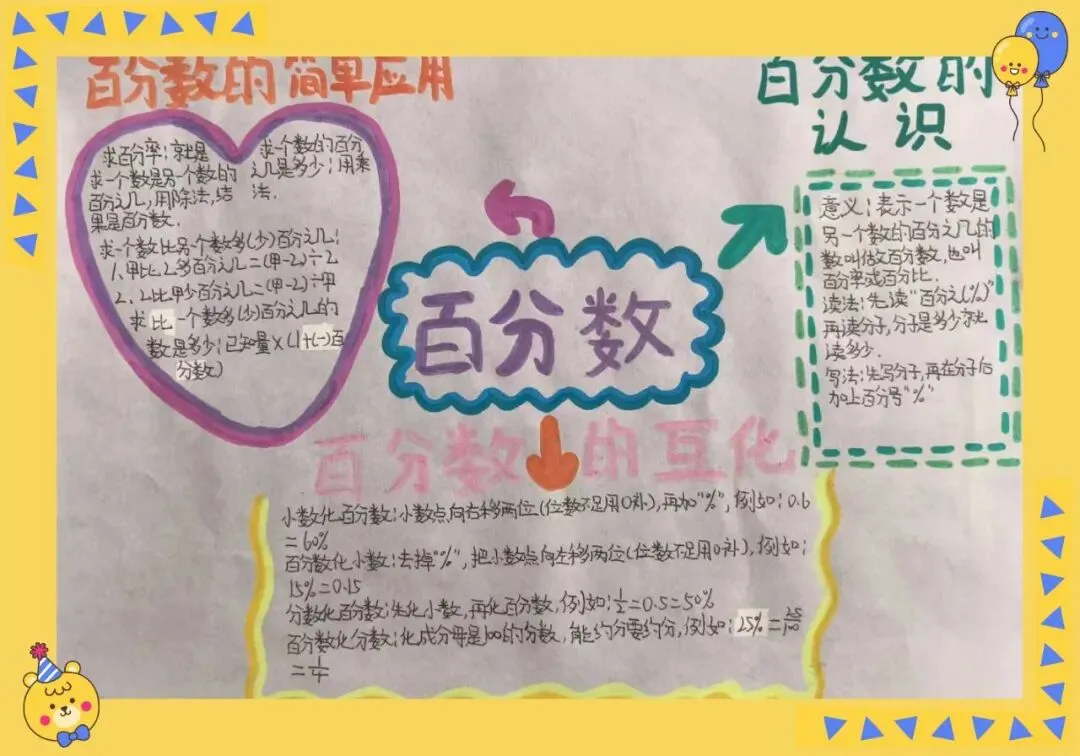 百分数的简单应用
求百分率：就是
求一个数是另一个数的
百分之几，用除法，结
果是百分数.
求一个数的百分
之几是多少：用乘
法.
求一个数比另一个数多(少)百分之几：
1、甲比乙多百分之几=(甲-乙)÷乙
2、乙比甲少百分之几=(甲-乙)÷甲
求比一个数多(少)百分之几的
数是多少：已知量×(1+(-)百
分数)
百分数
百分数的
认识
意义：表示一个数是
另一个数的百分之几的
数叫做百分数，也叫
百分率或百分比.
读法：先读“百分之(%)”
再读分子，分子是多少就
读多少.
写法：先写分子，再在分子后
加上百分号“%”
百分数的互化
小数化百分数：小数点向右移两位(位数不足用0补)，再加“%”，例如：0.6
=60%
百分数化小数：去掉“%”，把小数点向左移两位(位数不足用0补)，例如：
15%=0.15
分数化百分数：先化小数，再化百分数，例如：1/2=0.5=50%
百分数化分数：化成分母是100的分数，能约分要约分，例如：25%=25/100
=1/4